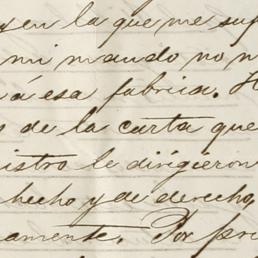 en la que me
mi mando no
á esa fabrica.
de la carta que
le dirigieron
hecho y de derecho,
amente. Por